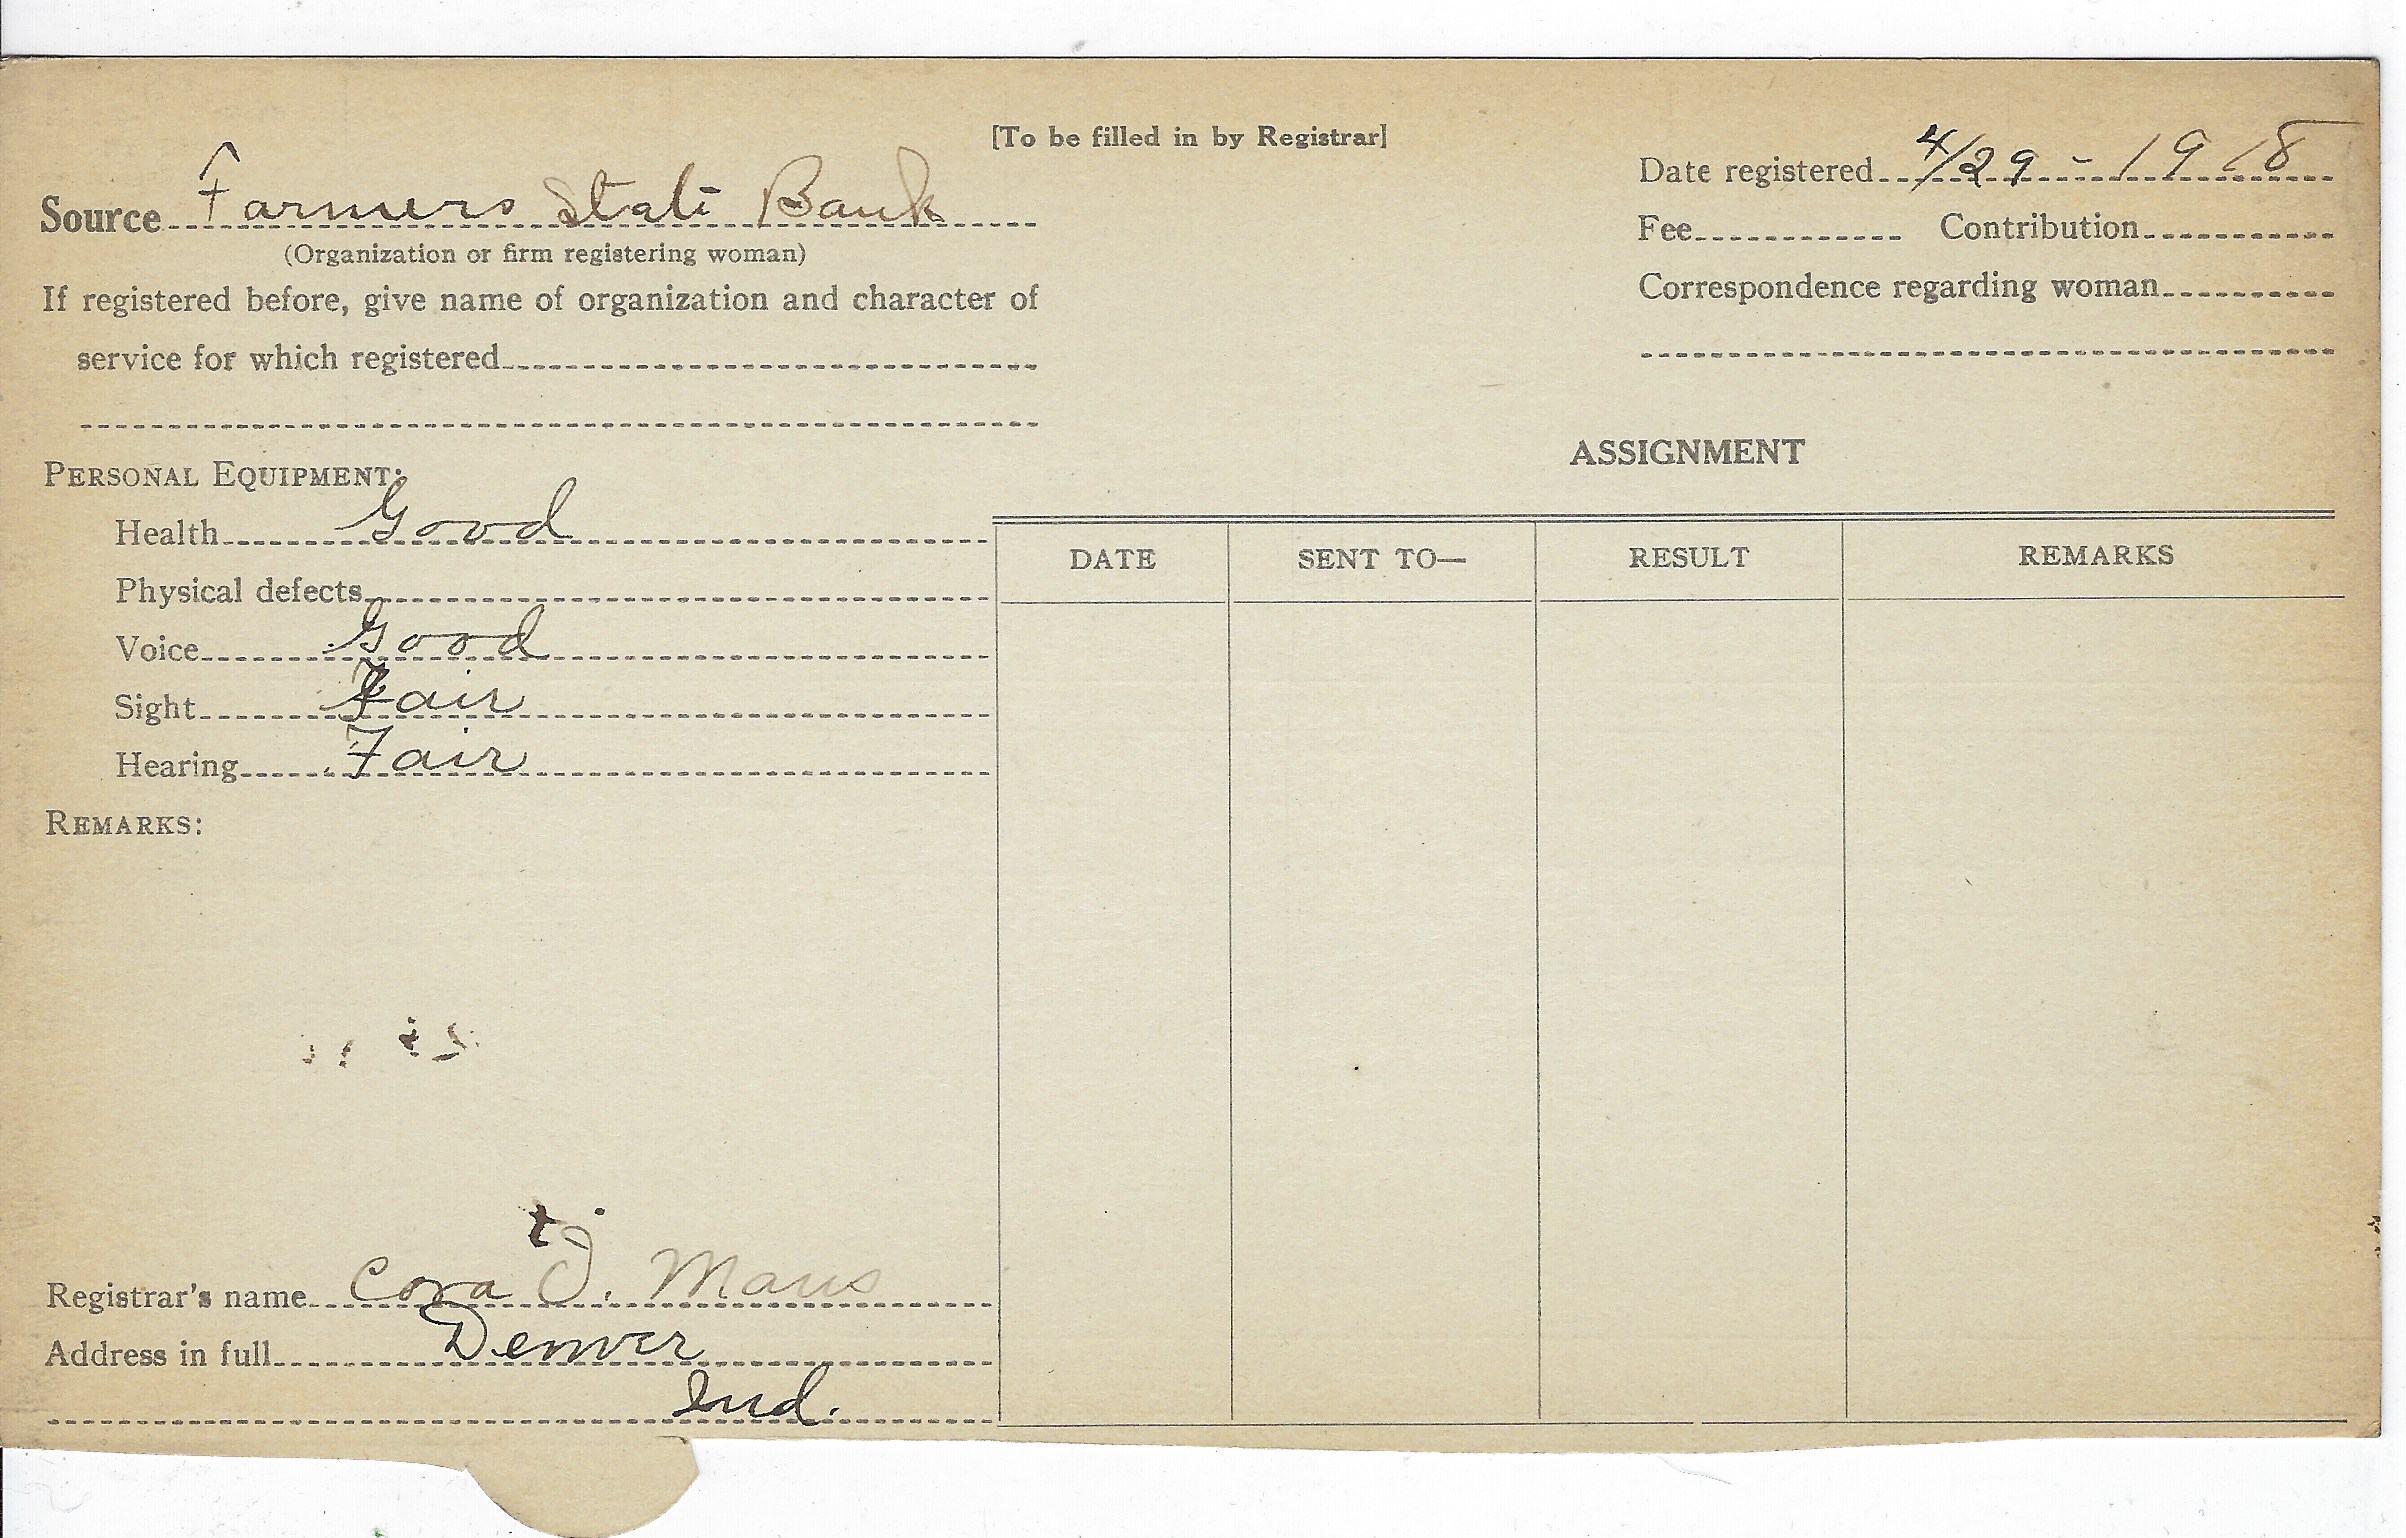 [To be filled in by Registrar]
Source Farmers State Bank
(Organization or firm registering woman)
If registered before, give name of organization and character of
service for which registered
Date registered 4/29 - 1918
Fee Contribution
Correspondence regarding woman
PERSONAL EQUIPMENT:
Health Good
Physical defects
Voice Good
Sight Fair
Hearing Fair
REMARKS:
Registrar's name Cora J. Maus
Address in full Denver
Ind.
ASSIGNMENT
DATE SENT TO— RESULT REMARKS